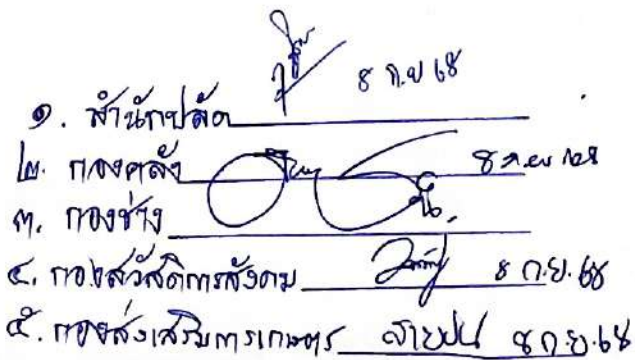 8 ก.ย 68
๑. สำนักปลัด
๒. กองคลัง 8 ก.ย 68
๓. กองช่าง
๔. กองสวัสดิการสังคม 8 ก.ย. 68
๕. กองส่งเสริมการเกษตร สายฝน 8 ก.ย. 68